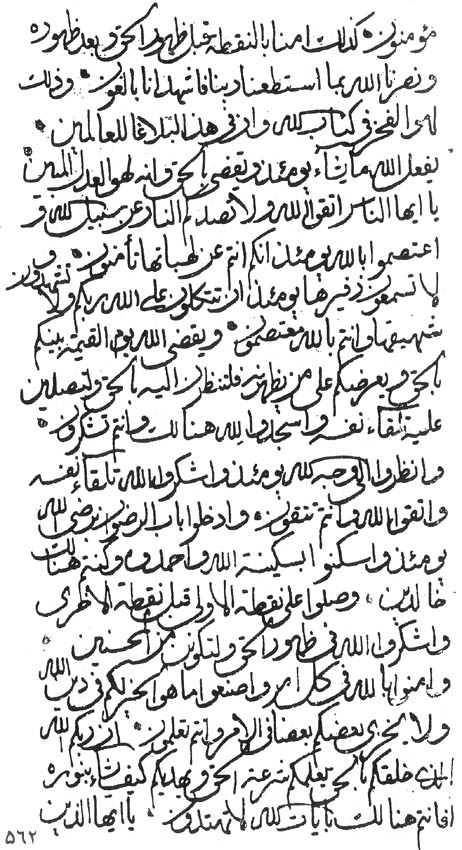 مؤمنون * كذلك امنا بالنقطة قبل ظهور الحق و بعد ظهوره
و نصرنا الله بما استطعنا ربنا فاشهدنا بالعون * و ذلك
لهو الفخر في كتاب الله و ان في هذا لبلاغا للعالمين *
يفعل الله ما يشاء يومئذ و يقضي بالحق و انه لهو العدل المبين *
يا ايها الناس اتقوا الله و لا تصدكم النار عن سبيل الله و
اعتصموا بالله يومئذ انكم انتم عن لهباتها تأمنون * و
لا تسمعون زفيرها يومئذ ان تتكلون على الله ربكم و لا تشهدون
شهيقها و انتم بالله معتصمون * و يقضي الله يوم القيمة بينكم
بالحق و يعرضكم على من يظهره فلتنظرن اليه بالحق و لتصلين
عليه تلقاء نفسه و اسجدوا لله هنالك و انتم تشكرون *
و انظروا الى وجه الله يومئذ و اشكروا الله تلقاء نفسه
و اتقوا الله و انتم تتقون * و ادخلوا باب الرضوان برضى الله
يومئذ و اسكنوا بسكينة الله و احمدوه و كنتم هنالك
خالدين * و صلوا على نقطة الاولى قبل نقطة الاخرى
و اشكروا الله في ظهور الحق و لتكونن من المحسنين *
و امنوا بالله في كل امر و اصنعوا ما هو الخير لكم في دين الله
و لا يحزن بعضكم بعضا في الامر و انتم تعلمون * ان ربكم الله
الذي خلقكم بالحق يعلمكم شرعة الحق و يهديكم كيف شاء بنوره
افانتم هنالك بايات الله لا تهتدون * يا ايها الذين
٥٦٢